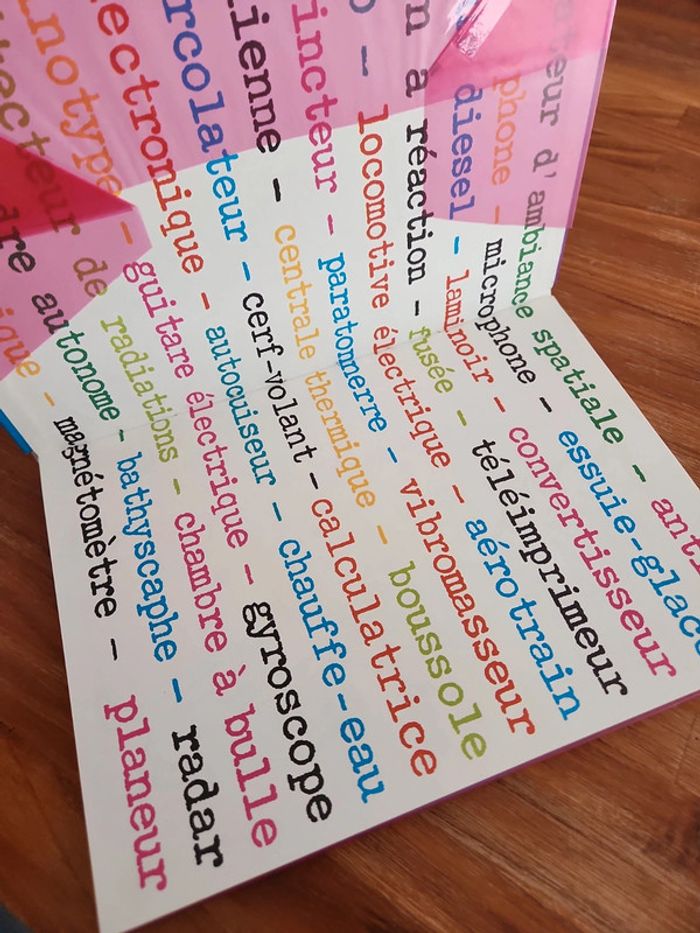 ateur d'ambiance spatiale - anti
phone - microphone - essuie-glace
diesel - laminoir - convertisseur
n à réaction - fusée - téléimprimeur
o - locomotive électrique - aérotrain
incteur - paratomerre - vibromasseur
ienne - centrale thermique - boussole
rcolateur - cerf-volant - calculatrice
ectronique - autocuiseur - chauffe-eau
notype - guitare électrique - gyroscope
tecteur de radiations - chambre à bulle
are autonome - bathyscaphe - radar
ique - magnétomètre - planeur